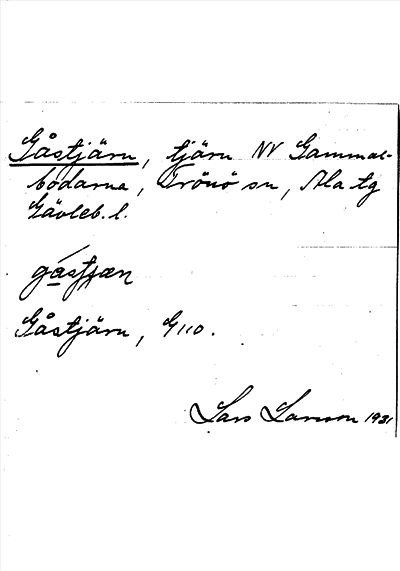 Gåstjärn, tjärn NV Gammal-
bodarna, Trönö sn, Ala tg
Gävleb. l.
Gåstjärn, G110.
Lars Larsson 1931